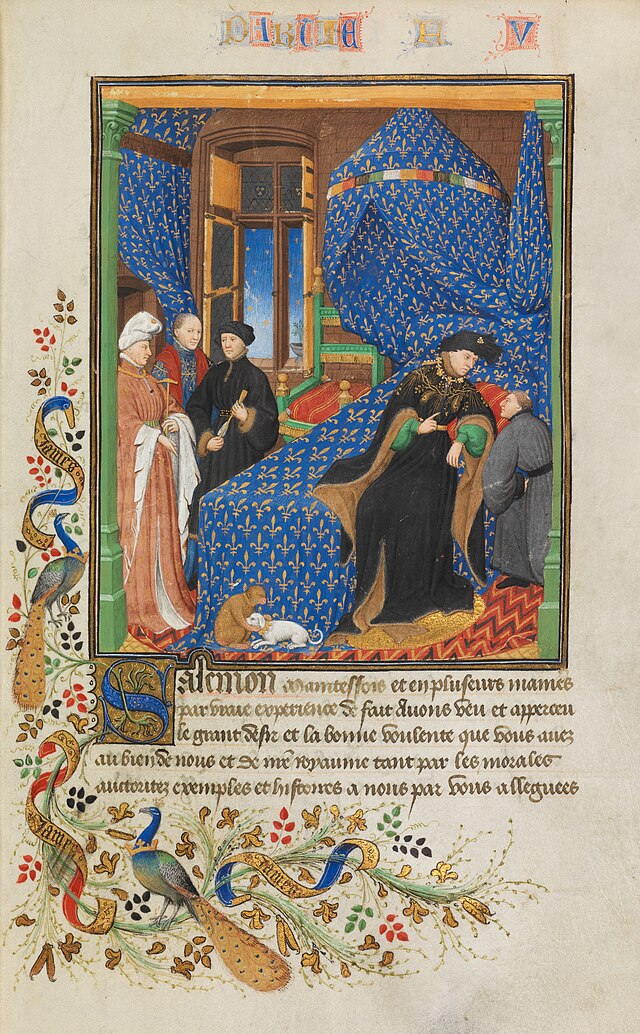 PARTIE II V
Salemon Maintesfois et en pluseurs manieres
par vraye experience de fait Avons veu et apperceu
le grant desir et la bonne voulente que vous avez
au bien de nous et de nre royaume tant par les morales
auctoritez exemples et histoires a nous par vous alleguees
james
james
james